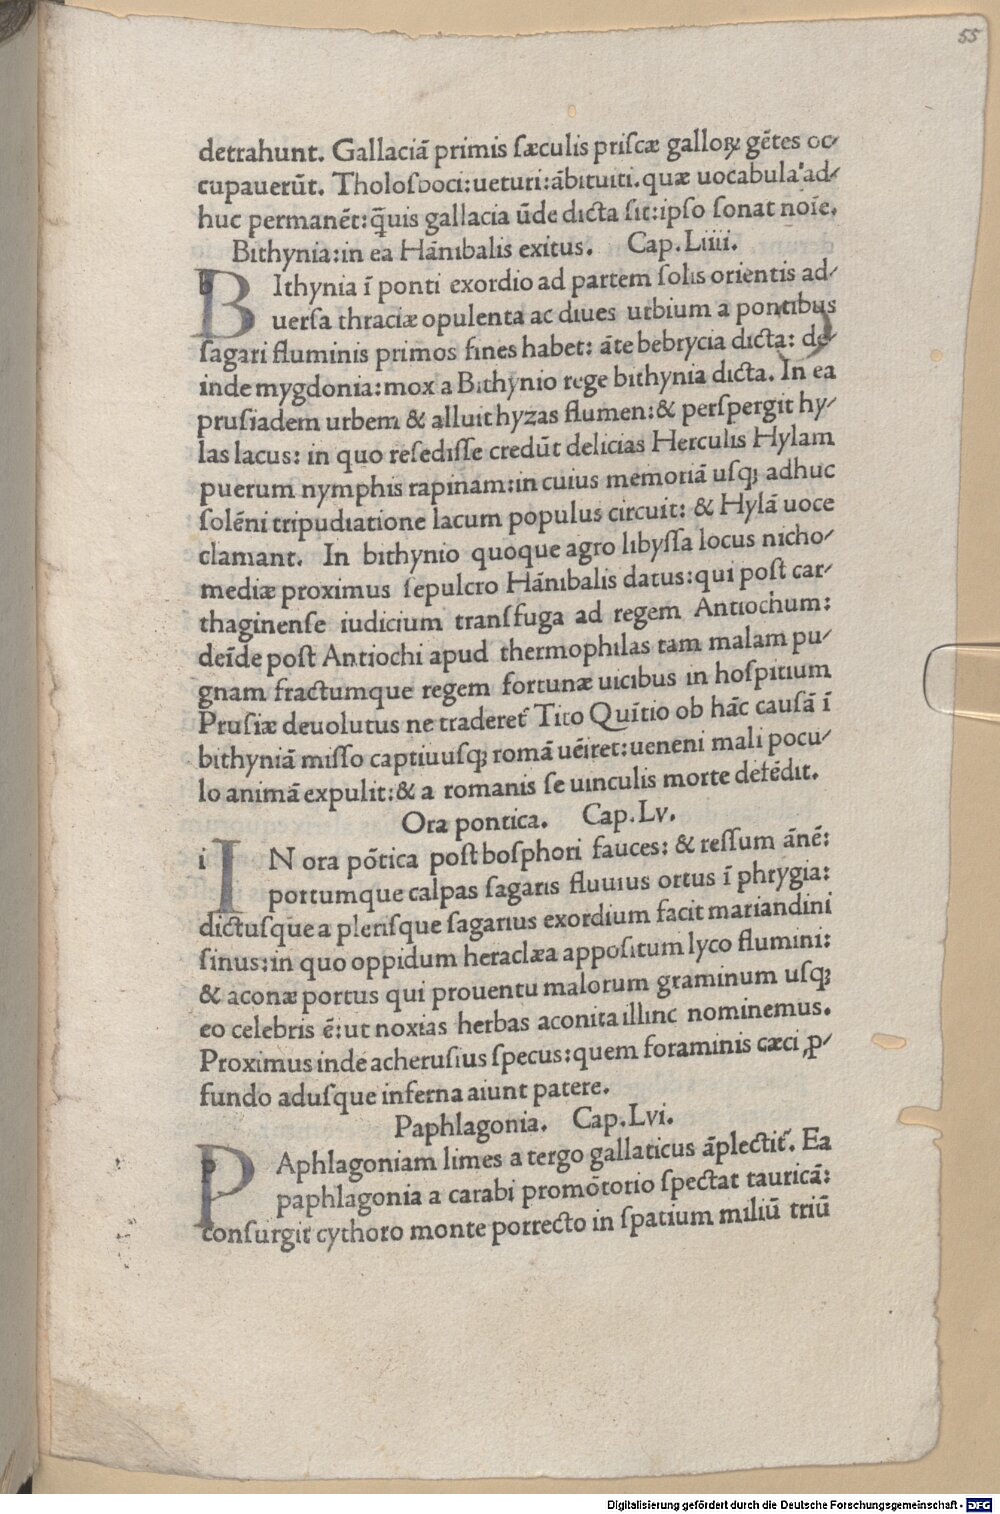 55
detrahunt. Gallaciā primis ſæculis priſcæ galloꝝ gētes oc⸗
cupauerūt. Tholoſboci:ueturi:ābituiti.quæ uocabula ad⸗
huc permanēt:q̄uis gallacia ūde dicta ſit:ipſo ſonat noīe.
Bithynia:in ea Hānibalis exitus. Cap.Liiii.
BIthynia ī ponti exordio ad partem ſolis orientis ad⸗
uerſa thraciæ opulenta ac diues urbium a pontibus
ſagari fluminis primos fines habet: āte bebrycia dicta: de⸗
inde mygdonia:mox a Bithynio rege bithynia dicta. In ea
pruſiadem urbem & alluit hyzas flumen:& perſpergit hy⸗
las lacus: in quo reſediſſe credūt delicias Herculis Hylam
puerum nymphis rapinam:in cuius memoriā uſqꝫ adhuc
ſolēni tripudiatione lacum populus circuit: & Hylā uoce
clamant. In bithynio quoque agro libyſſa locus nicho⸗
mediæ proximus ſepulcro Hānibalis datus:qui poſt car⸗
thaginenſe iudicium tranſfuga ad regem Antiochum:
deīde poſt Antiochi apud thermophilas tam malam pu⸗
gnam fractumque regem fortunæ uicibus in hoſpitium
Pruſiæ deuolutus ne traderet᷑ Tito Quītio ob hāc cauſā ī
bithyniā miſſo captiuuſqꝫ romā uēiret:ueneni mali pocu⸗
lo animā expulit:& a romanis ſe uinculis morte defēdit.
Ora pontica. Cap.Lv.
i IN ora pōtica poſt boſphori fauces: & reſſum ānē:
portumque calpas ſagaris fluuius ortus ī phrygia:
dictuſque a pleriſque ſagarius exordium facit mariandini
ſinus:in quo oppidum heraclæa appoſitum lyco flumini:
& aconæ portus qui prouentu malorum graminum uſqꝫ
eo celebris ē:ut noxias herbas aconita illinc nominemus.
Proximus inde acheruſius ſpecus:quem foraminis cæci ꝓ⸗
fundo aduſque inferna aiunt patere.
Paphlagonia. Cap.Lvi.
PAphlagoniam limes a tergo gallaticus āplectit᷑. Ea
paphlagonia a carabi promōtorio ſpectat tauricā:
conſurgit cythoro monte porrecto in ſpatium miliū triū
Digitalisierung gefördert durch die Deutsche Forschungsgemeinschaft - DFG